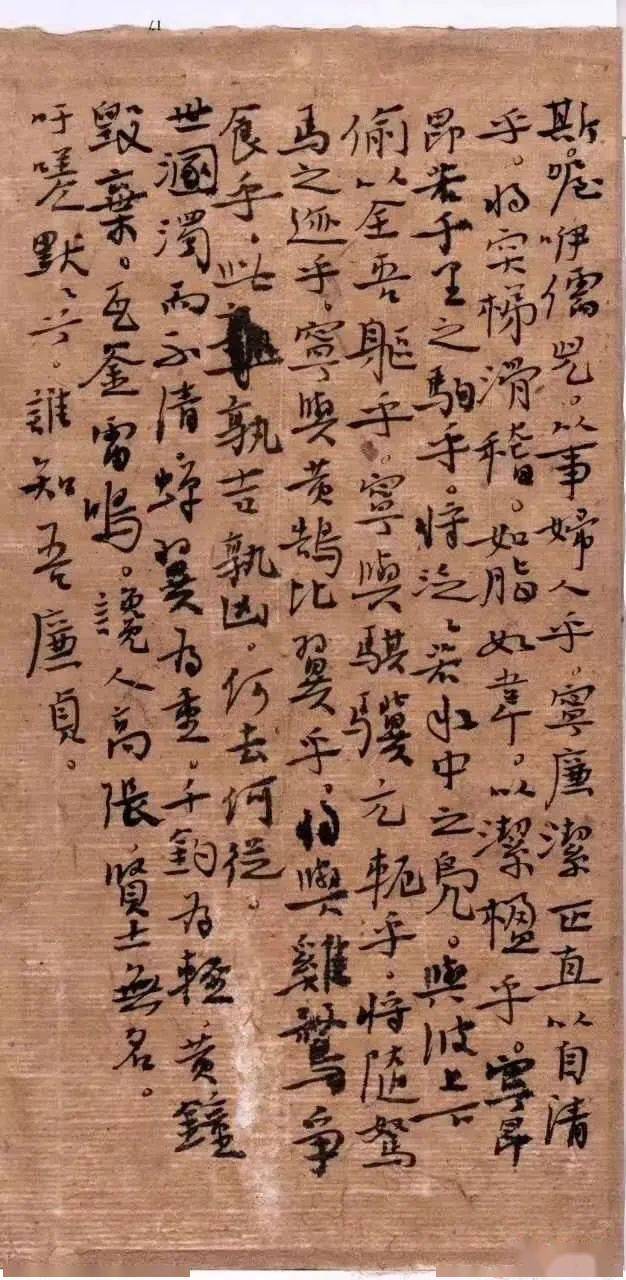 斯。喔咿儒兒。以事婦人乎。寧廉潔正直以自清
乎。將突梯滑稽。如脂如韋。以潔楹乎。寧昂
昂若千里之駒乎。將泛〻若水中之鳧。與波上下
偷以全吾軀乎。寧與騏驥亢軛乎。將隨駑
馬之迹乎。寧與黃鵠比翼乎。將與雞鶩爭
食乎。此孰吉孰凶。何去何從。
世溷濁而不清蟬翼為重。千鈞為輕黃鐘
毀棄。瓦釜雷鳴。讒人高張賢士無名。
吁嗟默〻兮。誰知吾廉貞。